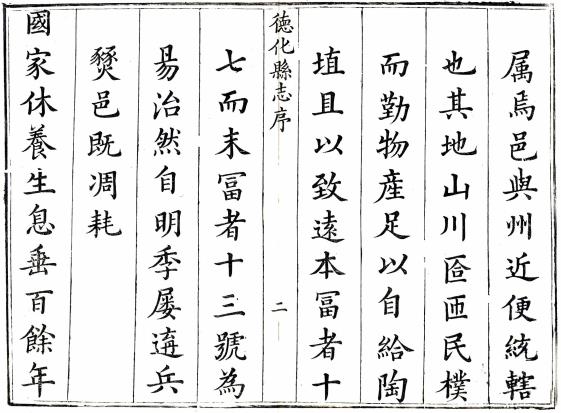 属焉邑與州近便統轄
也其地山川匼匝民樸
而勤物産足以自給陶
埴且以致遠本冨者十
德化縣志序
二
七而末冨者十三號為
易治然自明季屢遘兵
燹邑既凋耗
國家休養生息垂百餘年